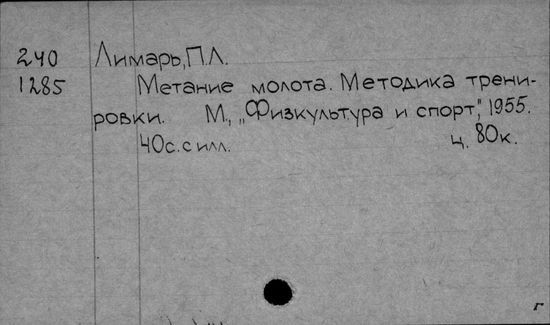 240 Лимарь, П.Л.
1285 Метание молота. Методика трени-
ровки. М., „Физкультура и спорт", 1955.
40с. с илл. ц. 80к.
г